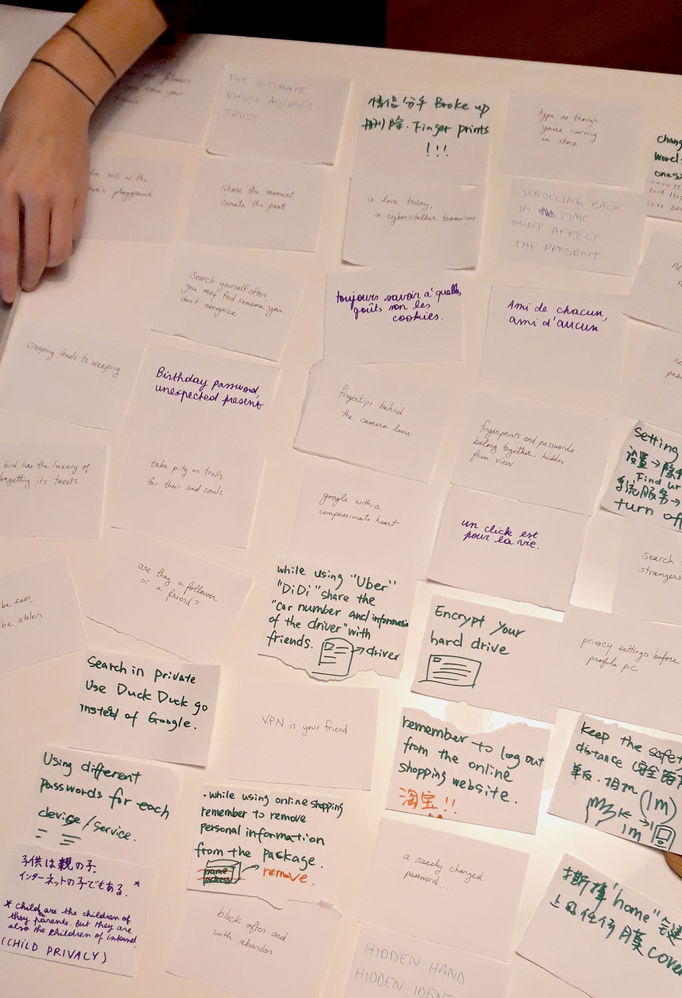 THE INTIMATE
PHOTO ASSUMES
TRUST
情侣分手 Broke up
删除. Finger prints
!!!
type as though
you're carving
in stone
playground
share the moment
curate the past
a love today,
a cyberstalker tomorrow
SCROLLING BACK
IN TIME
WONT AFFECT
THE PRESENT
Search yourself often
you may find someone you
don't recognize
toujours savoir à quelles
goûts son les
cookies.
Ami de chacun,
ami d'aucun
creeping leads to weeping
Birthday password,
unexpected present
fingertips behind
the camera lens
fingerprints and passwords
belong together: hidden
from view
Setting
设置→
Find ur
系统服务→
turn off
bird has the luxury of
forgetting its tweets
take pity on trolls
for their sad souls
google with a
compassionate heart
un click est
pour la vie.
Search
strangers
are they a follower
or a friend?
while using "Uber"
"DiDi" share the
"car number and information
of the driver" with
friends. → driver
Encrypt your
hard drive
privacy settings before
profile pic
be stolen
Search in private
Use Duck Duck go
instead of Google.
VPN is your friend
remember to log out
from the online
shopping website.
淘宝!!
Keep the safety
distance
(1m)
1m
Using different
passwords for each
devise/service.
• while using online shopping
remember to remove
personal information
from the package.
name
adress
remove.
a rarely changed
password...
子供は親の子.
インターネットの子でもある. *
* child are the children of
they parents. But they are
also the children of internet
(CHILD PRIVACY)
block often and
with abandon
"home"键
cover
HIDDEN HAND
HIDDEN